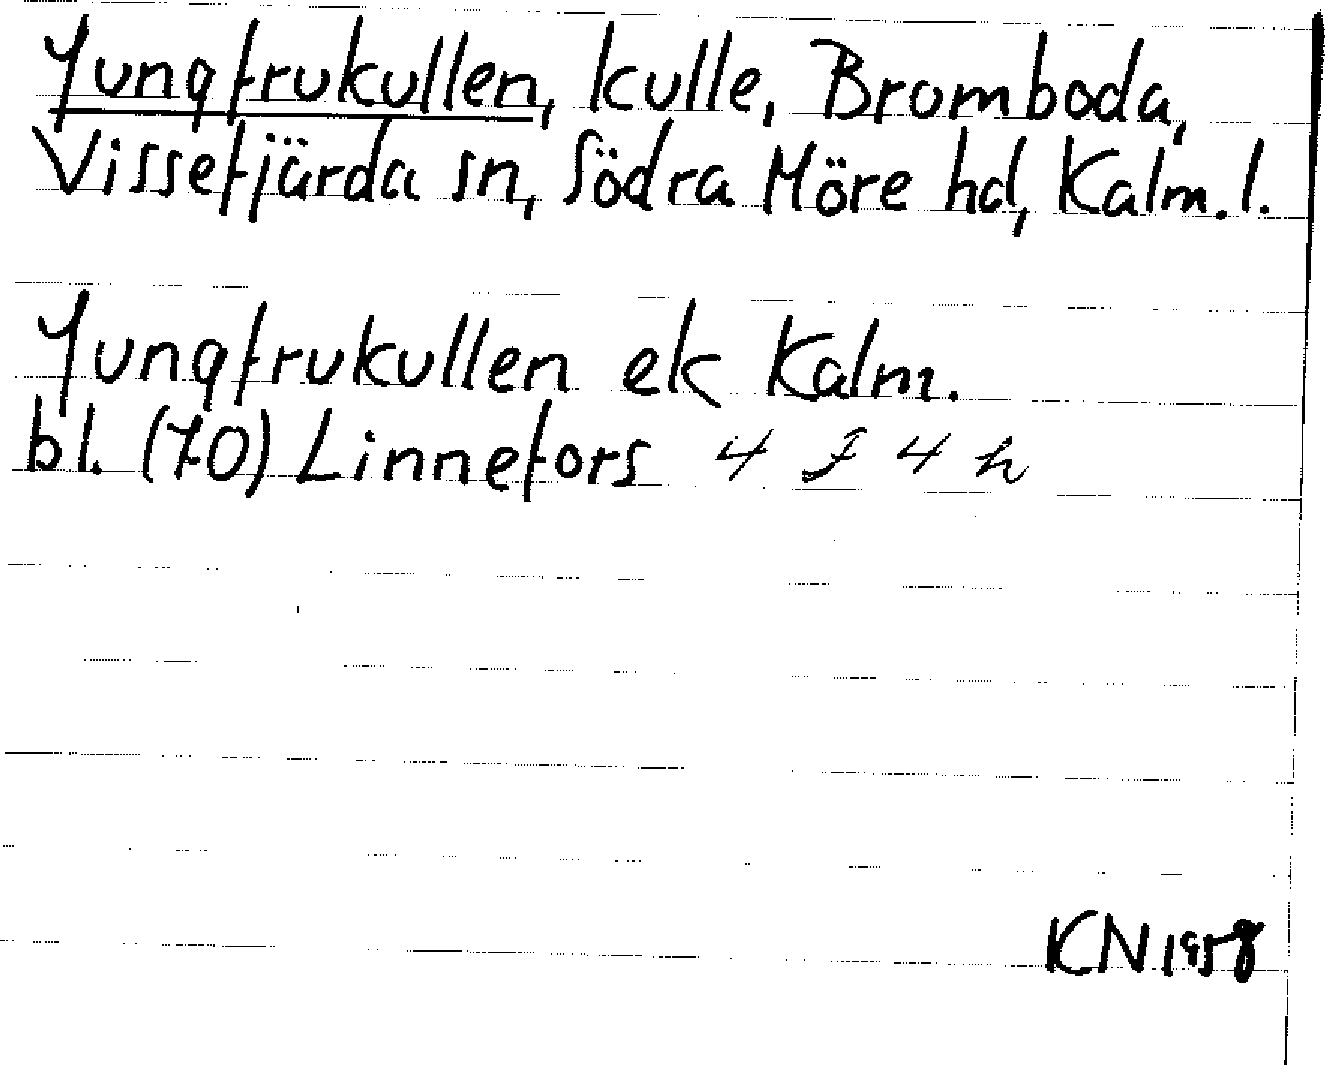 Jungfrukullen, kulle, Bromboda,
Vissefjärda sn, Södra Möre hd, Kalm. l.
Jungfrukullen ek Kalm.
bl. (70) Linnefors 4 F 4 h
KN 1958